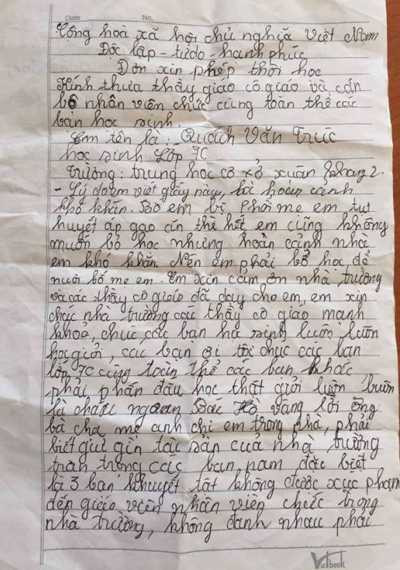 Cộng hoà xã hội chủ nghĩa Việt Nam
Độc lập - tự do - hạnh phúc
Đơn xin phép thôi học
Kính thưa thầy giáo cô giáo và cán
bộ nhân viên chức cùng toàn thể các
bạn học sinh
Em tên là: Quách Văn Trúc
học sinh lớp 7C
Trường: trung học cơ sở xuân phang 2.
- Lý do em viết giấy này, hoàn cảnh
khó khăn. Bố em bị mẹ em tụt
huyết áp gạo ăn thì hết em cũng không
muốn bỏ học nhưng hoàn cảnh nhà
em khó khăn. Nên em phải bỏ học để
nuôi bố mẹ em. Em xin cảm ơn nhà trường
và các thầy cô giáo đã dạy cho em, em xin
chúc nhà trường các thầy cô giáo mạnh
khoẻ, chúc các bạn học sinh luôn luôn
học giỏi, các bạn ơi tôi chúc các bạn
lớp 7C cùng toàn thể các bạn khác
phải phấn đấu học thật giỏi luôn luôn
là cháu ngoan Bác Hồ vâng lời ông
bà cha mẹ anh chị em trong nhà, phải
biết giữ gìn tài sản của nhà trường
trân trọng các bạn, nam đặc biệt
là 3 bạn khuyết tật không được xúc phạm
đến giáo viên nhân viên chức trong
nhà trường, không đánh nhau phải